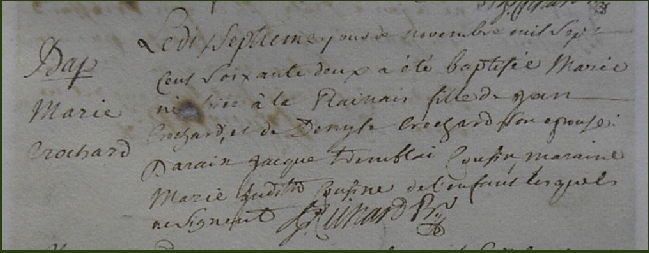 Bap
Marie
Crochard
Le dix septieme jour de novembre mil sept
cens soixante deux a été baptisée Marie
née à la Plainais fille de Jean
Crochard, et de Denyse Crochard son epouse.
Parain Jacque Tremblai Cousin maraine
Marie Judith Cousine de l'enfant lesquels
ne signent